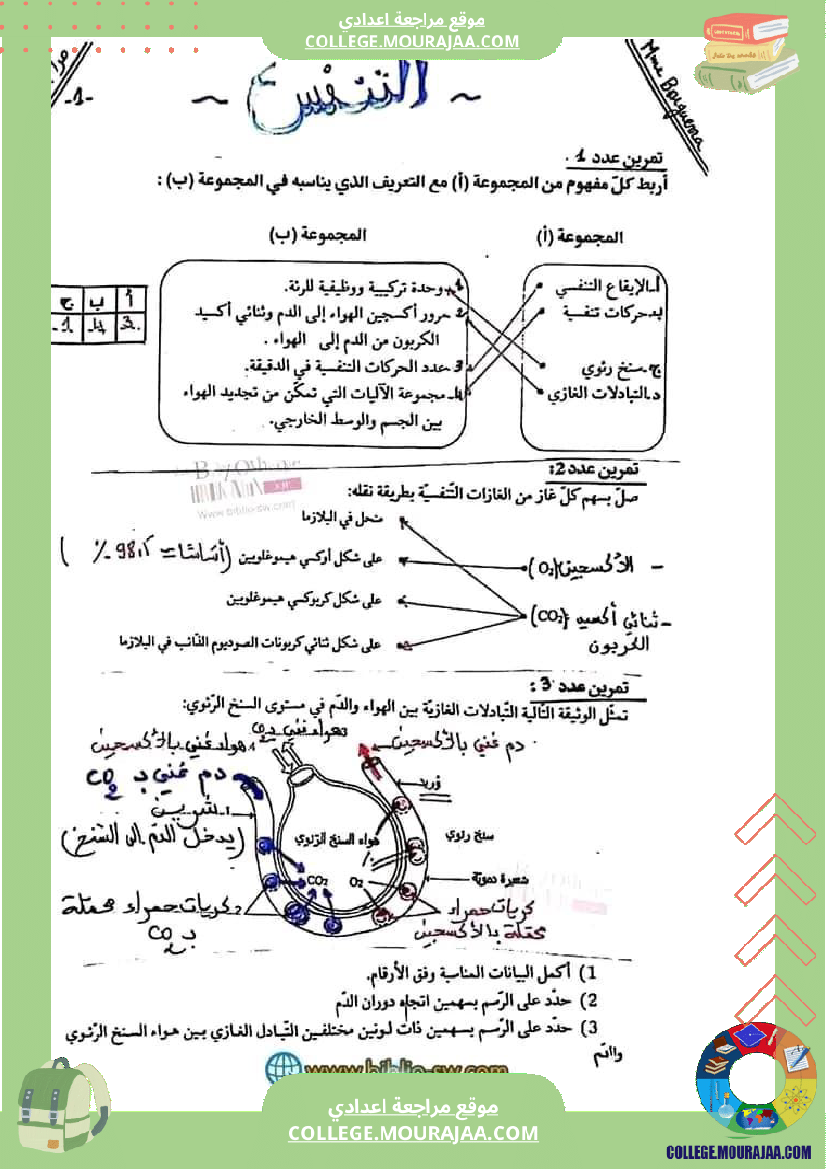 موقع مراجعة اعدادي
COLLEGE.MOURAJAA.COM
Mme Bouguerra
-1-
~ التنفس ~
تمرين عدد 1 .
أربط كلّ مفهوم من المجموعة (أ) مع التعريف الذي يناسبه في المجموعة (ب) :
المجموعة (أ)
المجموعة (ب)
أ-الإيقاع التنفسي
ب-حركات تنفسية
ج-سنخ رئوي
د.التبادلات الغازي
1.وحدة تركيبية ووظيفية للرئة.
2-مرور أكسجين الهواء إلى الدم وثنائي أكسيد
الكربون من الدم إلى الهواء .
3-عدد الحركات التنفسية في الدقيقة.
4-مجموعة الآليات التي تمكّن من تجديد الهواء
بين الجسم والوسط الخارجي.
أ ب ج
3. 4- 1-
تمرين عدد2:
www.biblio-sw.com
صلّ بسهم كلّ غاز من الغازات التّنفسيّة بطريقة نقله:
منحل في البلازما
على شكل أركسي هيموغلوبين (أساسا = 98,5 %)
على شكل كربوكسي هيموغلوبين
على شكل ثنائي كربونات الصوديوم الذّائب في البلازما
- الأكسجين (O₂)
- ثنائي أكسيد (CO₂)
الكربون
تمرين عدد 3 :
تمثّل الوثيقة التّالية التّبادلات الغازيّة بين الهواء والدّم في مستوى السنخ الرّئوي:
هواء غني بـ CO₂
هواء غني بالأكسجين
دم غني بالأكسجين
دم غني بـ CO₂
وريد
1-شريين
(يدخل الدم الى السنخ)
هواء السنخ الرّئوي
سنخ رئوي
CO₂
O₂
شعيرة دمويّة
2كريات حمراء محملة
بـ CO₂
كريات حمراء
محملة بالأكسجين
1) أكمل البيانات المناسبة وفق الأرقام.
2) حدّد على الرّسم بسهمين اتجاه دوران الدّم
3) حدّد على الرّسم بسهمين ذات لونين مختلفين التّبادل الغازي بين هواء السنخ الرّئوي
والدّم
www.biblio-sw.com
موقع مراجعة اعدادي
COLLEGE.MOURAJAA.COM
COLLEGE.MOURAJAA.COM